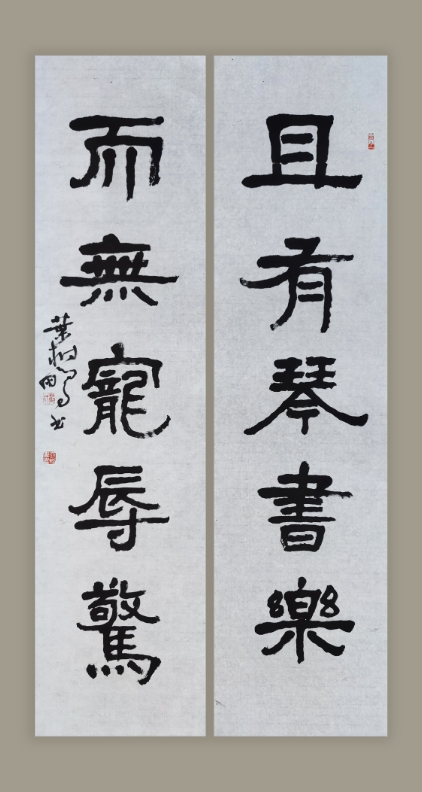 且有琴書樂
而無寵辱驚